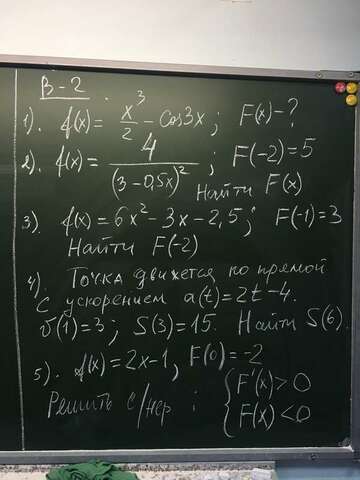 В-2.
1). f(x) = x³/2 - cos3x; F(x)-?
2). f(x) = 4/(3-0,5x)²; F(-2)=5
Найти F(x)
3). f(x)=6x²-3x-2,5; F(-1)=3
Найти F(-2)
4). Точка движется по прямой
с ускорением a(t)=2t-4.
v(1)=3; S(3)=15. Найти S(6).
5). f(x)=2x-1, F(0)=-2
Решить с/нер: { F'(x)>0
F(x)<0